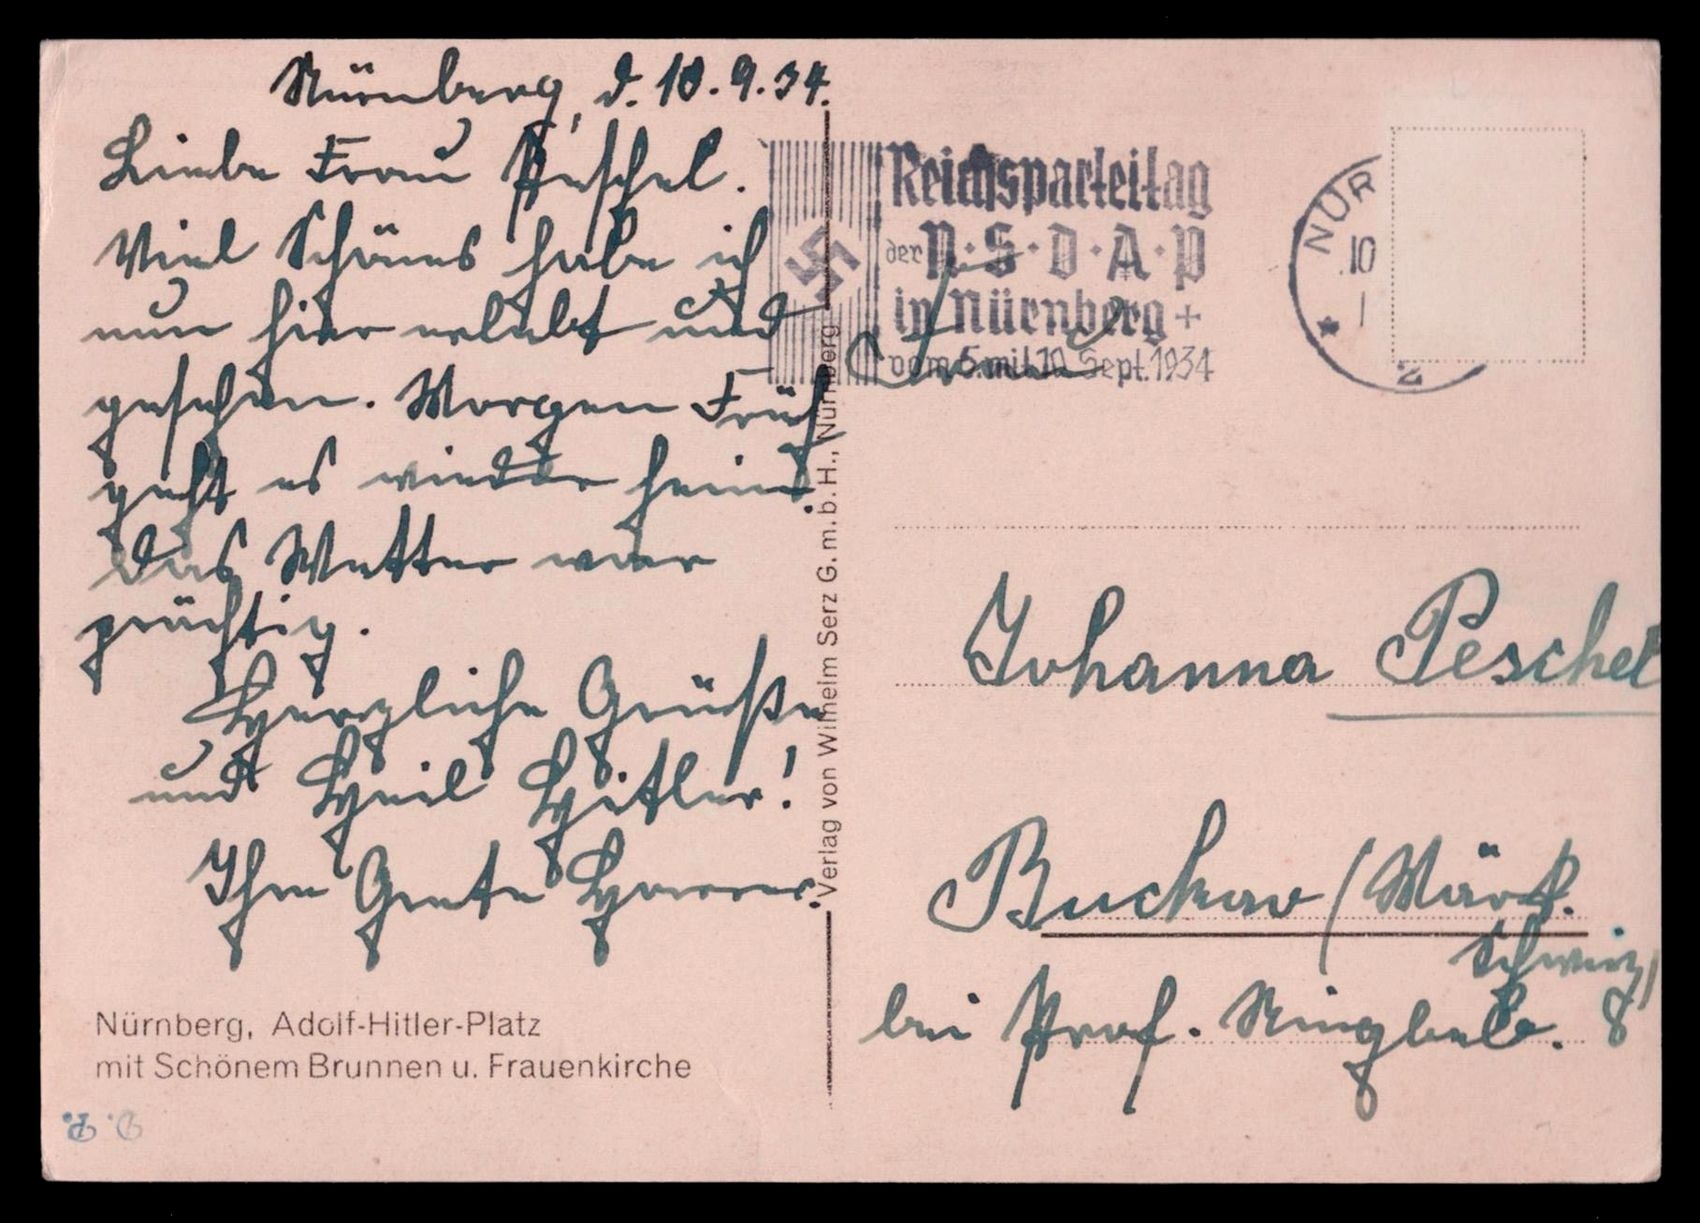 Nürnberg, d. 10.9.34.
Liebe Frau Peschel.
Viel Schönes habe ich
nun hier erlebt und
gesehen. Morgen Früh
geht es wieder heim.
das Wetter war
prächtig.
Herzliche Grüße
und Heil Hitler!
Ihre Grete
Nürnberg, Adolf-Hitler-Platz
mit Schönem Brunnen u. Frauenkirche
Verlag von Wilhelm Serz G.m.b.H., Nürnberg
Reichsparteitag
der N·S·D·A·P
in Nürnberg +
vom 5. mit 10. Sept. 1934
NÜR
10
2
Frau
Johanna Peschel
Buckow (Märk.
Schweiz)
bei Prof.